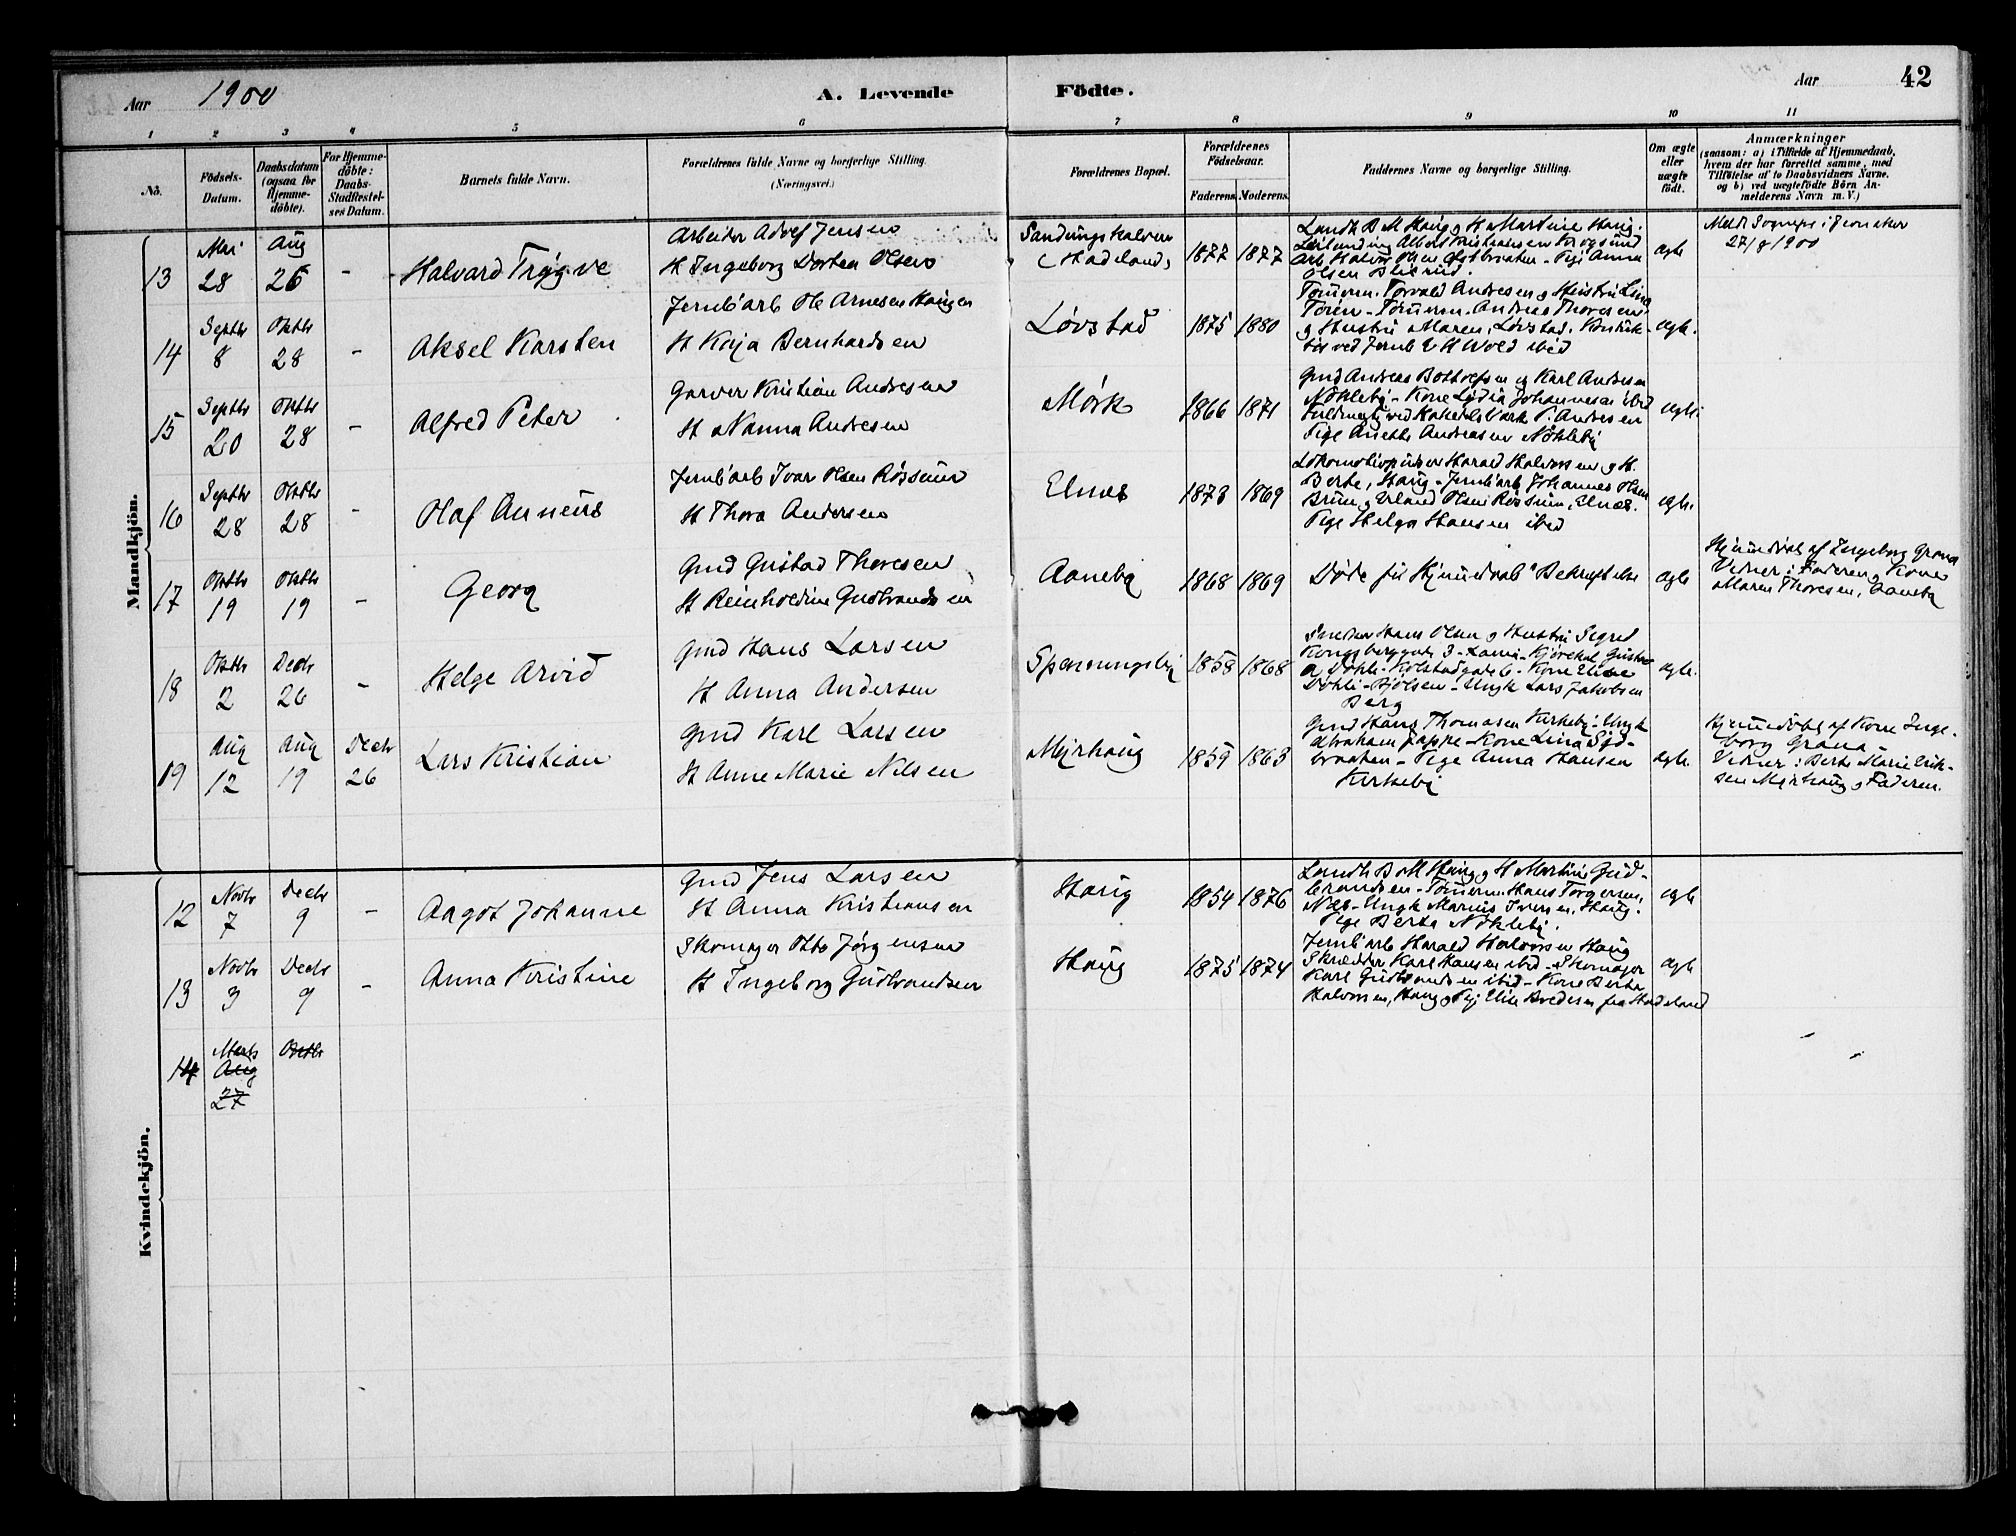 Aar 1900
A. Levende Födte.
Aar 42
1 2 3 4 5 6 7 8 9 10 11
No.
Födsels-Datum.
Daabsdatum (ogsaa for Hjemmedöbte).
For Hjemmedöbte: Daabs-Stadfestelses Datum.
Barnets fulde Navn.
Forældrenes fulde Navne og borgerlige Stilling.
(Næringsvei.)
Forældrenes Bopæl.
Forældrenes Födselsaar.
Faderens Moderens
Faddernes Navne og borgerlige Stilling.
Om ægte eller uægte födt.
Anmærkninger
(saasom: a) i Tilfælde af Hjemmedaab,
hvem der har forrettet samme, med
Tilföielse af to Daabsvidners Navne,
og b) ved uægtefödte Börn An-
melderens Navn m. V.)
Mandkjön.
13 Mai 28 Aug 26 - Halvard Trygve
Arbeider Adolf Jensen
H Ingeborg Dortea Olsen
(Hadeland) 1877 1877
Landh B M Haug H Martine Haug.
ægte
27/8 1900
14 Septbr 8 Oktbr 28 - Aksel Karsten
Jernb'arb Ole Arnesen Haugen
H Kaja Bernhardsen
Løvstad 1875 1880
Tømerm. Torvald Andresen og Hustru Lina
Toren - Tømerm. Andreas Thoresen
og Hustru Maren, Løvstad.
ved Jernb V H Wold ibid
ægte.
15 Septbr 20 Oktbr 28 - Alfred Peter
Garver Kristian Andresen
H Nanna Andresen
Mørk 1866 1871
Gmd Andreas Bottolfsen og Karl Andresen
Nökleby - Kone Lydia Johannesen ibid
Pige Anette Andreasen Nökleby
ægte.
16 Septbr 28 Oktbr 28 - Olaf Anneus
Jernb'arb Ivar Olsen Røssum
H Thora Andersen
Elnes 1873 1869
Harald Halvorsen og H.
Berte, Haug - Jernb'arb Johannes Olsen
Bruun, Erland Olsen Røssum, Elnæs.
Pige Helga Hansen ibid
ægte.
17 Oktbr 19 Oktbr 19 - Georg
Gmd Gustad Thoresen
H Reinholdine Gudbrandsen
Aaneby 1868 1869
Døde før Hjemmedaabs Bekræftelse
ægte
Hjemmedøbt af Ingeborg Grana
Vidner: Faderen og Kone
Maren Thoresen, Aaneby
18 Oktbr 2 Decbr 26 - Helge Arvid
Gmd Hans Larsen
H Anna Andersen
1858 1868
Smeden Hans Olsen og Hustru Sigrid
Kongsberggade 3 - Kjørekal Gustav
A Döhli - Kolstadgade 6 - Kone Elise
Döhli - Bjölsen - Ungk Lars Jakobsen
Berg
ægte.
19 Aug 12 Aug 19 Decbr 26 Lars Kristian
Gmd Karl Larsen
H Anne Marie Nilsen
Myrhaug 1859 1863
Gmd Hans Thomasen Kirkeby - Ungk
Abraham Pappe - Kone Lina Syd-
braaten - Pige Anna Hansen
Kirkeby
ægte.
Hjemmedøbt af Kone Inge-
borg Grana -
Vidner: Berte Marie Erik-
sen Myrhaug og Faderen.
Kvindekjön.
12 Novbr 7 Decbr 9 - Aagot Johanne
Gmd Jens Larsen
H Anna Kristiansen
Haug 1854 1876
Landh B M Haug og H Martine Gud-
brandsen - Tømerm. Hans Torgersen,
Næs - Ungk Marius Iversen, Haug.
Pige Berta Nökleby.
ægte
13 Novbr 3 Decbr 9 - Anna Kristine
Skomager Otto Jørgensen
H Ingeborg Gudbrandsen
Haug 1875 1874
Jernb'arb Harald Halvorsen Haug
Skrædder Karl Hansen ibid - Skomager
Karl Gudbrandsen ibid - Kone Berta
Halvorsen, Haug og Pige Elise Bredesen fra Hadeland
ægte
14 Marts Aug 27 Oktbr